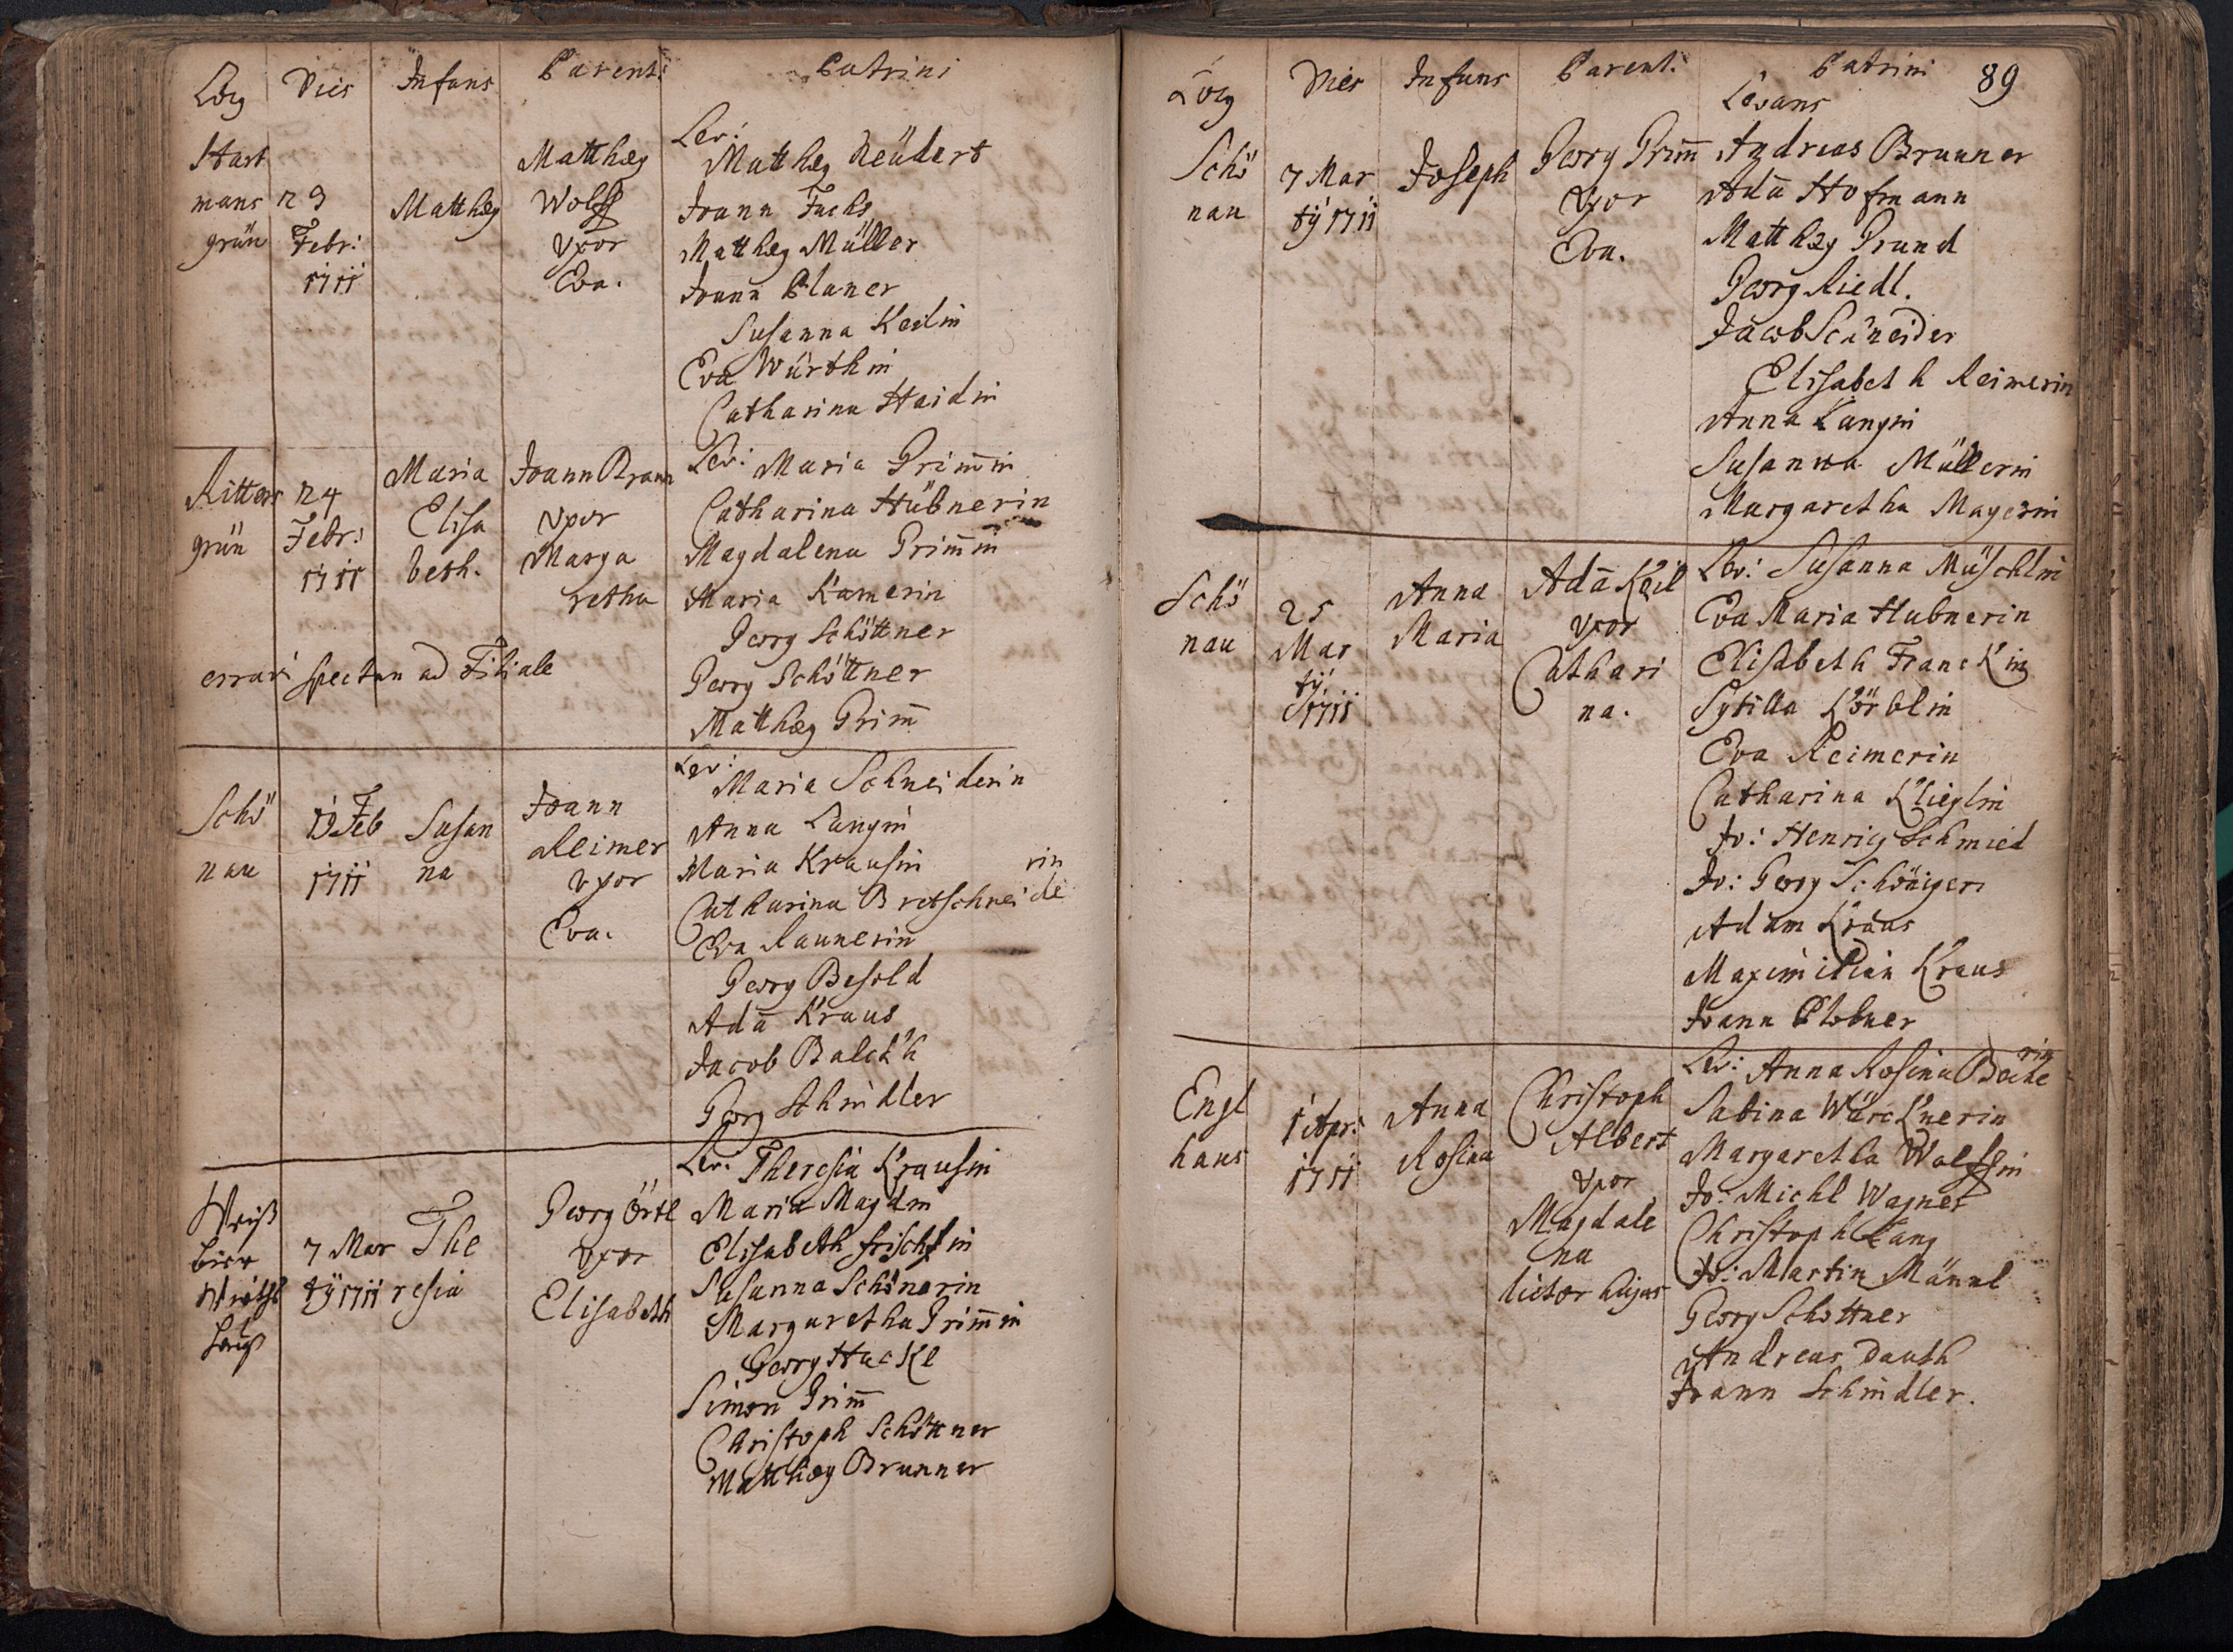 Locg Dies Infans Parent: Patrini
Hart
mans
grün
23
Febr:
1711
Matthæg
Matthæg
Wolff
Vxor
Eva.
Lev:
Matthæg Neüdert
Joann Fuchs
Matthæg Müller
Joann Planer
Susanna Keilin
Eva Würthin
Catharina Haidin
Ritters
grün
24
Febr:
1711
Maria
Elisa
beth.
Joann Braun
vxor
Marga
retha
Lev: Maria Grim̄in
Catharina Hübnerin
Magdalena Grim̄in
Maria Kamerin
Georg Schöttner
Georg Schöttner
Matthæg Grim̄
spectan ad Filiale
Schö
nau
19 Feb
1711
Susan
na
Joann
Reimer
vxor
Eva.
Lev:
Maria Schneiderin
Anna Langin
Maria Krausin
Catharina Bretschneide
rin
Eva Raunerin
Georg Besold
Adā Kraus
Jacob Balckh
Georg Schindler
7 Mar
tÿ 1711
The
resia
Georg Örtl
vxor
Elisabeth
Lev: Theresia Krausin
Maria Magdin
Elisabeth frischfin
Susanna Schönerin
Margaretha Grim̄in
Georg Hackl
Simon Grim̄
Christoph Schöttner
Matthæg Brunner
89
Locg Dies Infans Parent: Patrini
Schö
nau
7 Mar
tÿ 1711
Joseph
Georg Grim̄
Vxor
Eva.
Levans
Andreas Brunner
Adā Hofmann
Matthæg Grund
Georg Riedl.
Jacob Schneider
Elisabeth Reimerin
Anna Langin
Susanna Müllerin
Margaretha Mayerin
Schö
nau
25
Mar
tÿ
1711
Anna
Maria
Adā Keil
vxor
Cathari
na.
Lev: Susanna Müschlin
Eva Maria Hubnerin
Elisabeth Franckin
Sybilla Körblin
Eva Reimerin
Catharina Klieglin
Jo: Henricg Schmied
Jo: Georg Schöniger
Adam Kraus
Maximilian Kraus
Joann Plobner
Engl
haus
1 Apr:
1711
Anna
Rosina
Christoph
Albert
vxor
Magdale
na
lictor hujus
Lev: Anna Rosina Beche
rin
Sabina Würcknerin
Margaretha Wolffin
Jo: Michl Wagner
Christoph Lang
Jo: Martin Männl
Georg Schöttner
Andreas Dauth
Joann Schindler.